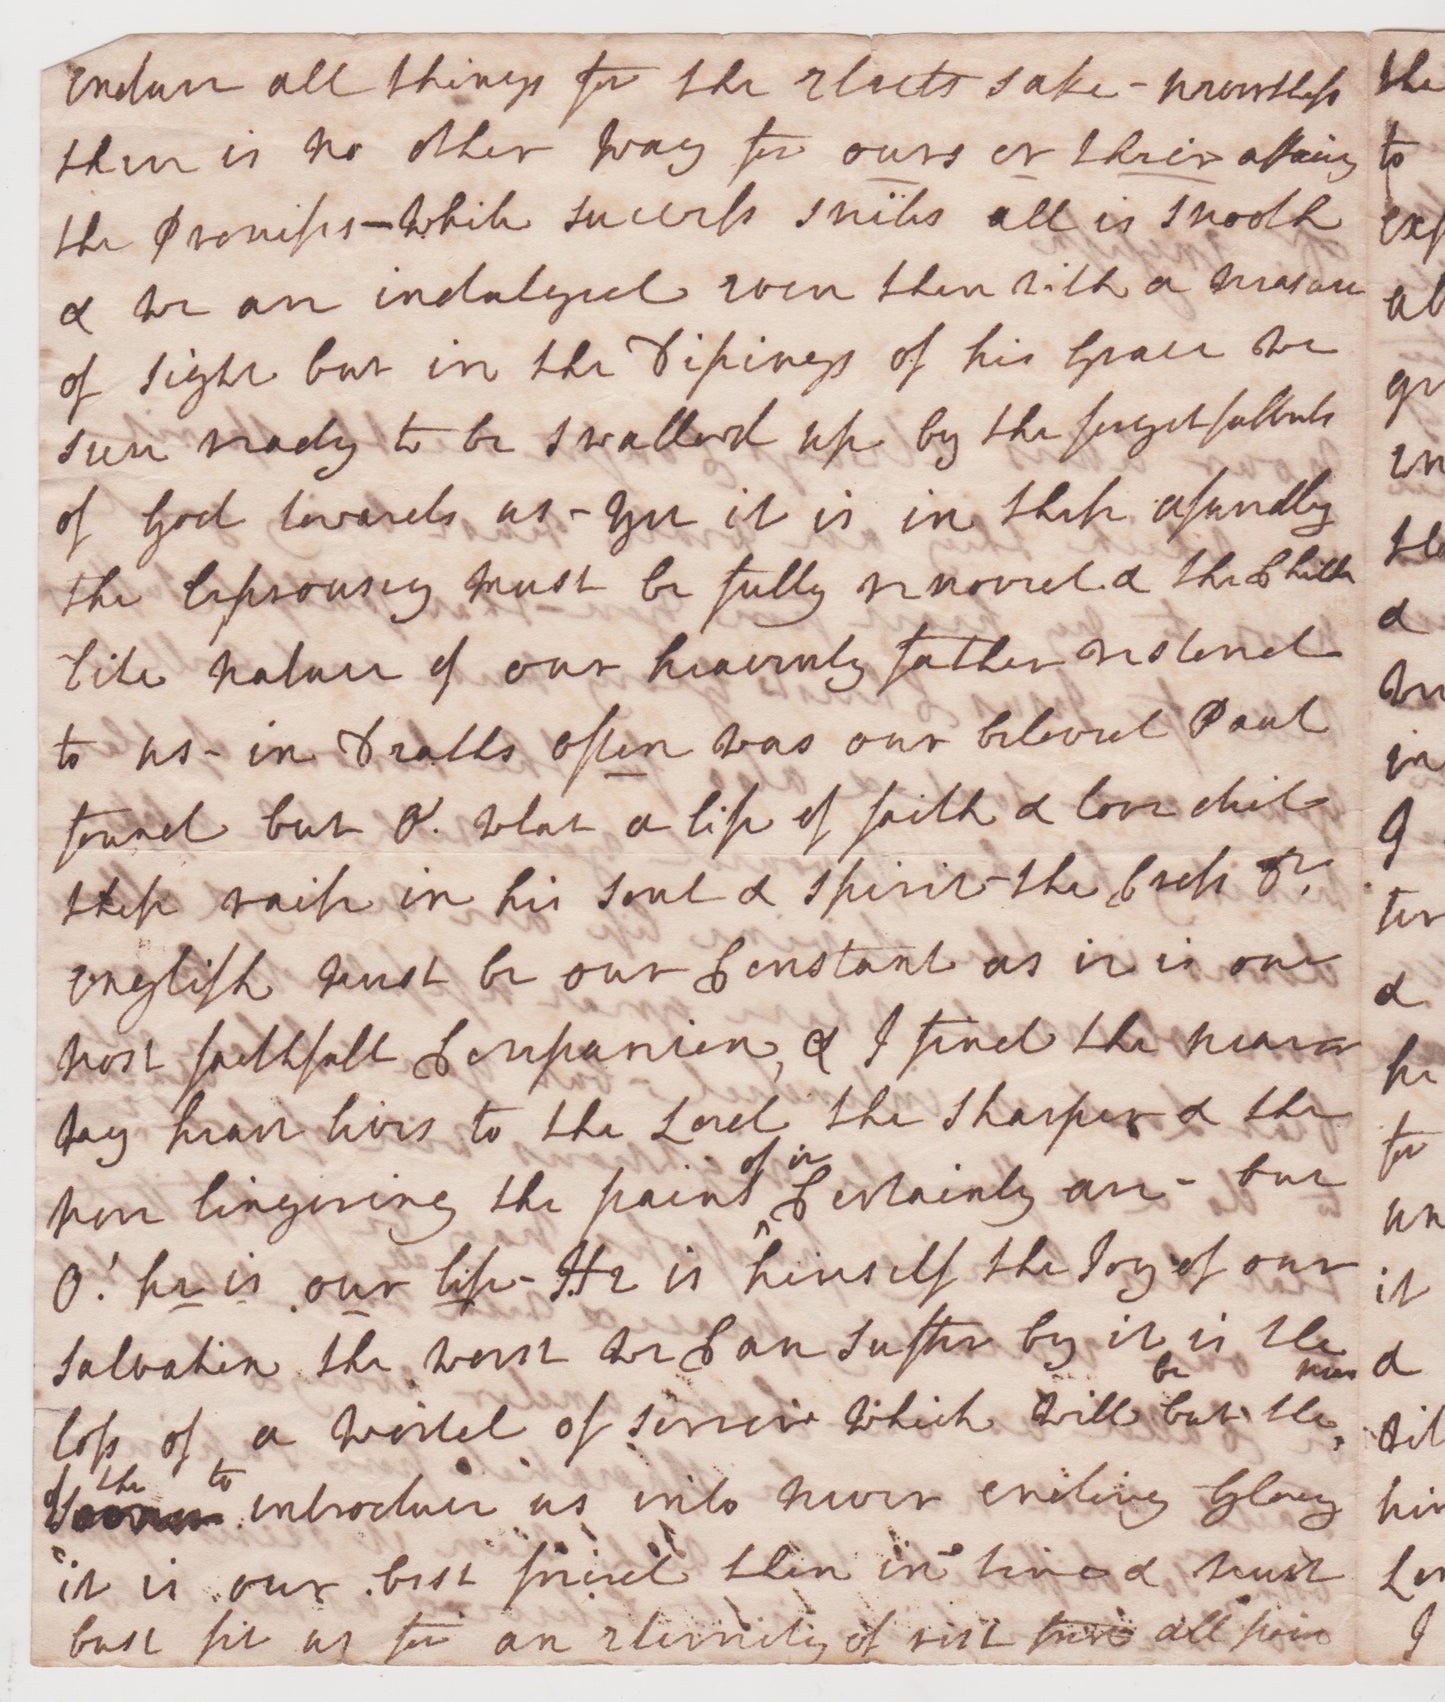 endure all things for the elects sake - nevertheless
there is no other way for ours or their
the Promises - while success smiles all is smooth
& we are indulged even then with a measure
of sight but in the of his Grace we
seem ready to be swallowd up by the forgetfullness
of God towards us - yet it is in these
the leprousey must be fully removed & the Childe
like nature of our heavenly father restored
to us - in Deaths often was our beloved Paul
found but O. what a life of faith & love did
these raise in his soul & spirit - the Cross Dr,
english must be our Constant as it is our
most faithfull Companion, & I find the nearer
my heart lives to the Lord the sharper & the
more lingering the pains of it Certainly are - but
O! he is our life - He is himself the Joy of our
salvation the worst we Can suffer by it is the
loss of a world of sorrow which will be but the means
of the to introduce us into never ending Glory
it is our best friend then in time & must
best fit us for an eternity of rest all
the
to
exp
ab
gr
in
the
&
we
in
I
ter
&
he
for
un
it
&
til
him
Lor
I